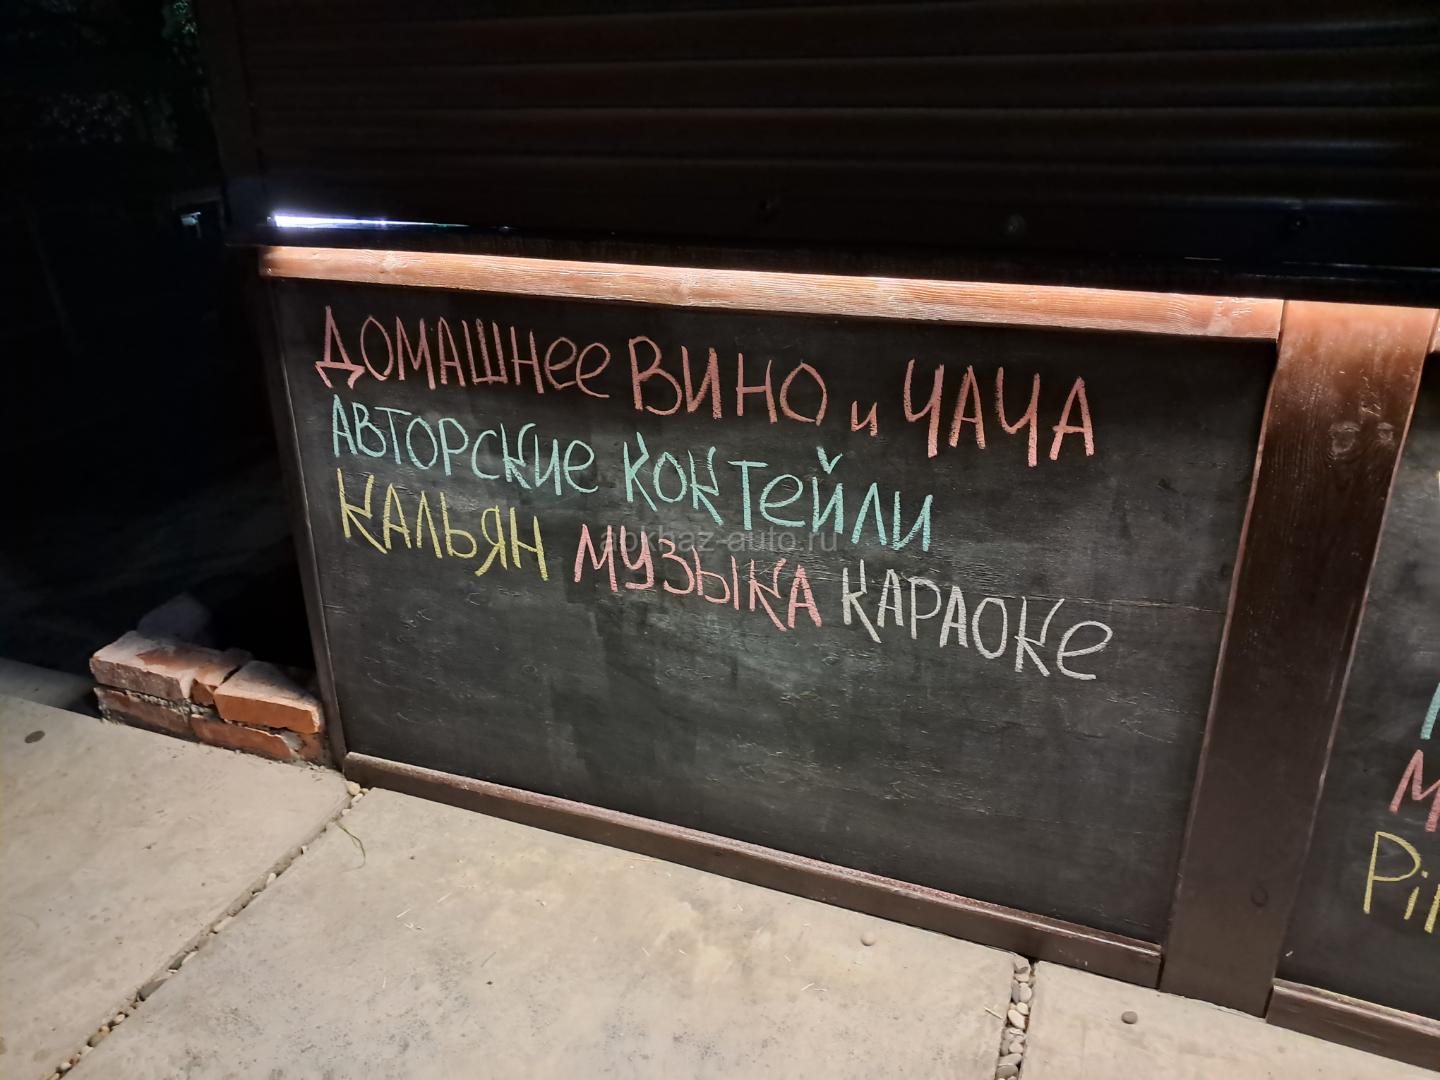 ДОМАШНее ВИНО и ЧАЧА
АВТОРСКИе КОКТеЙЛИ
КАЛЬЯН МУЗЫКА КАРАОКе
abkhaz-auto.ru